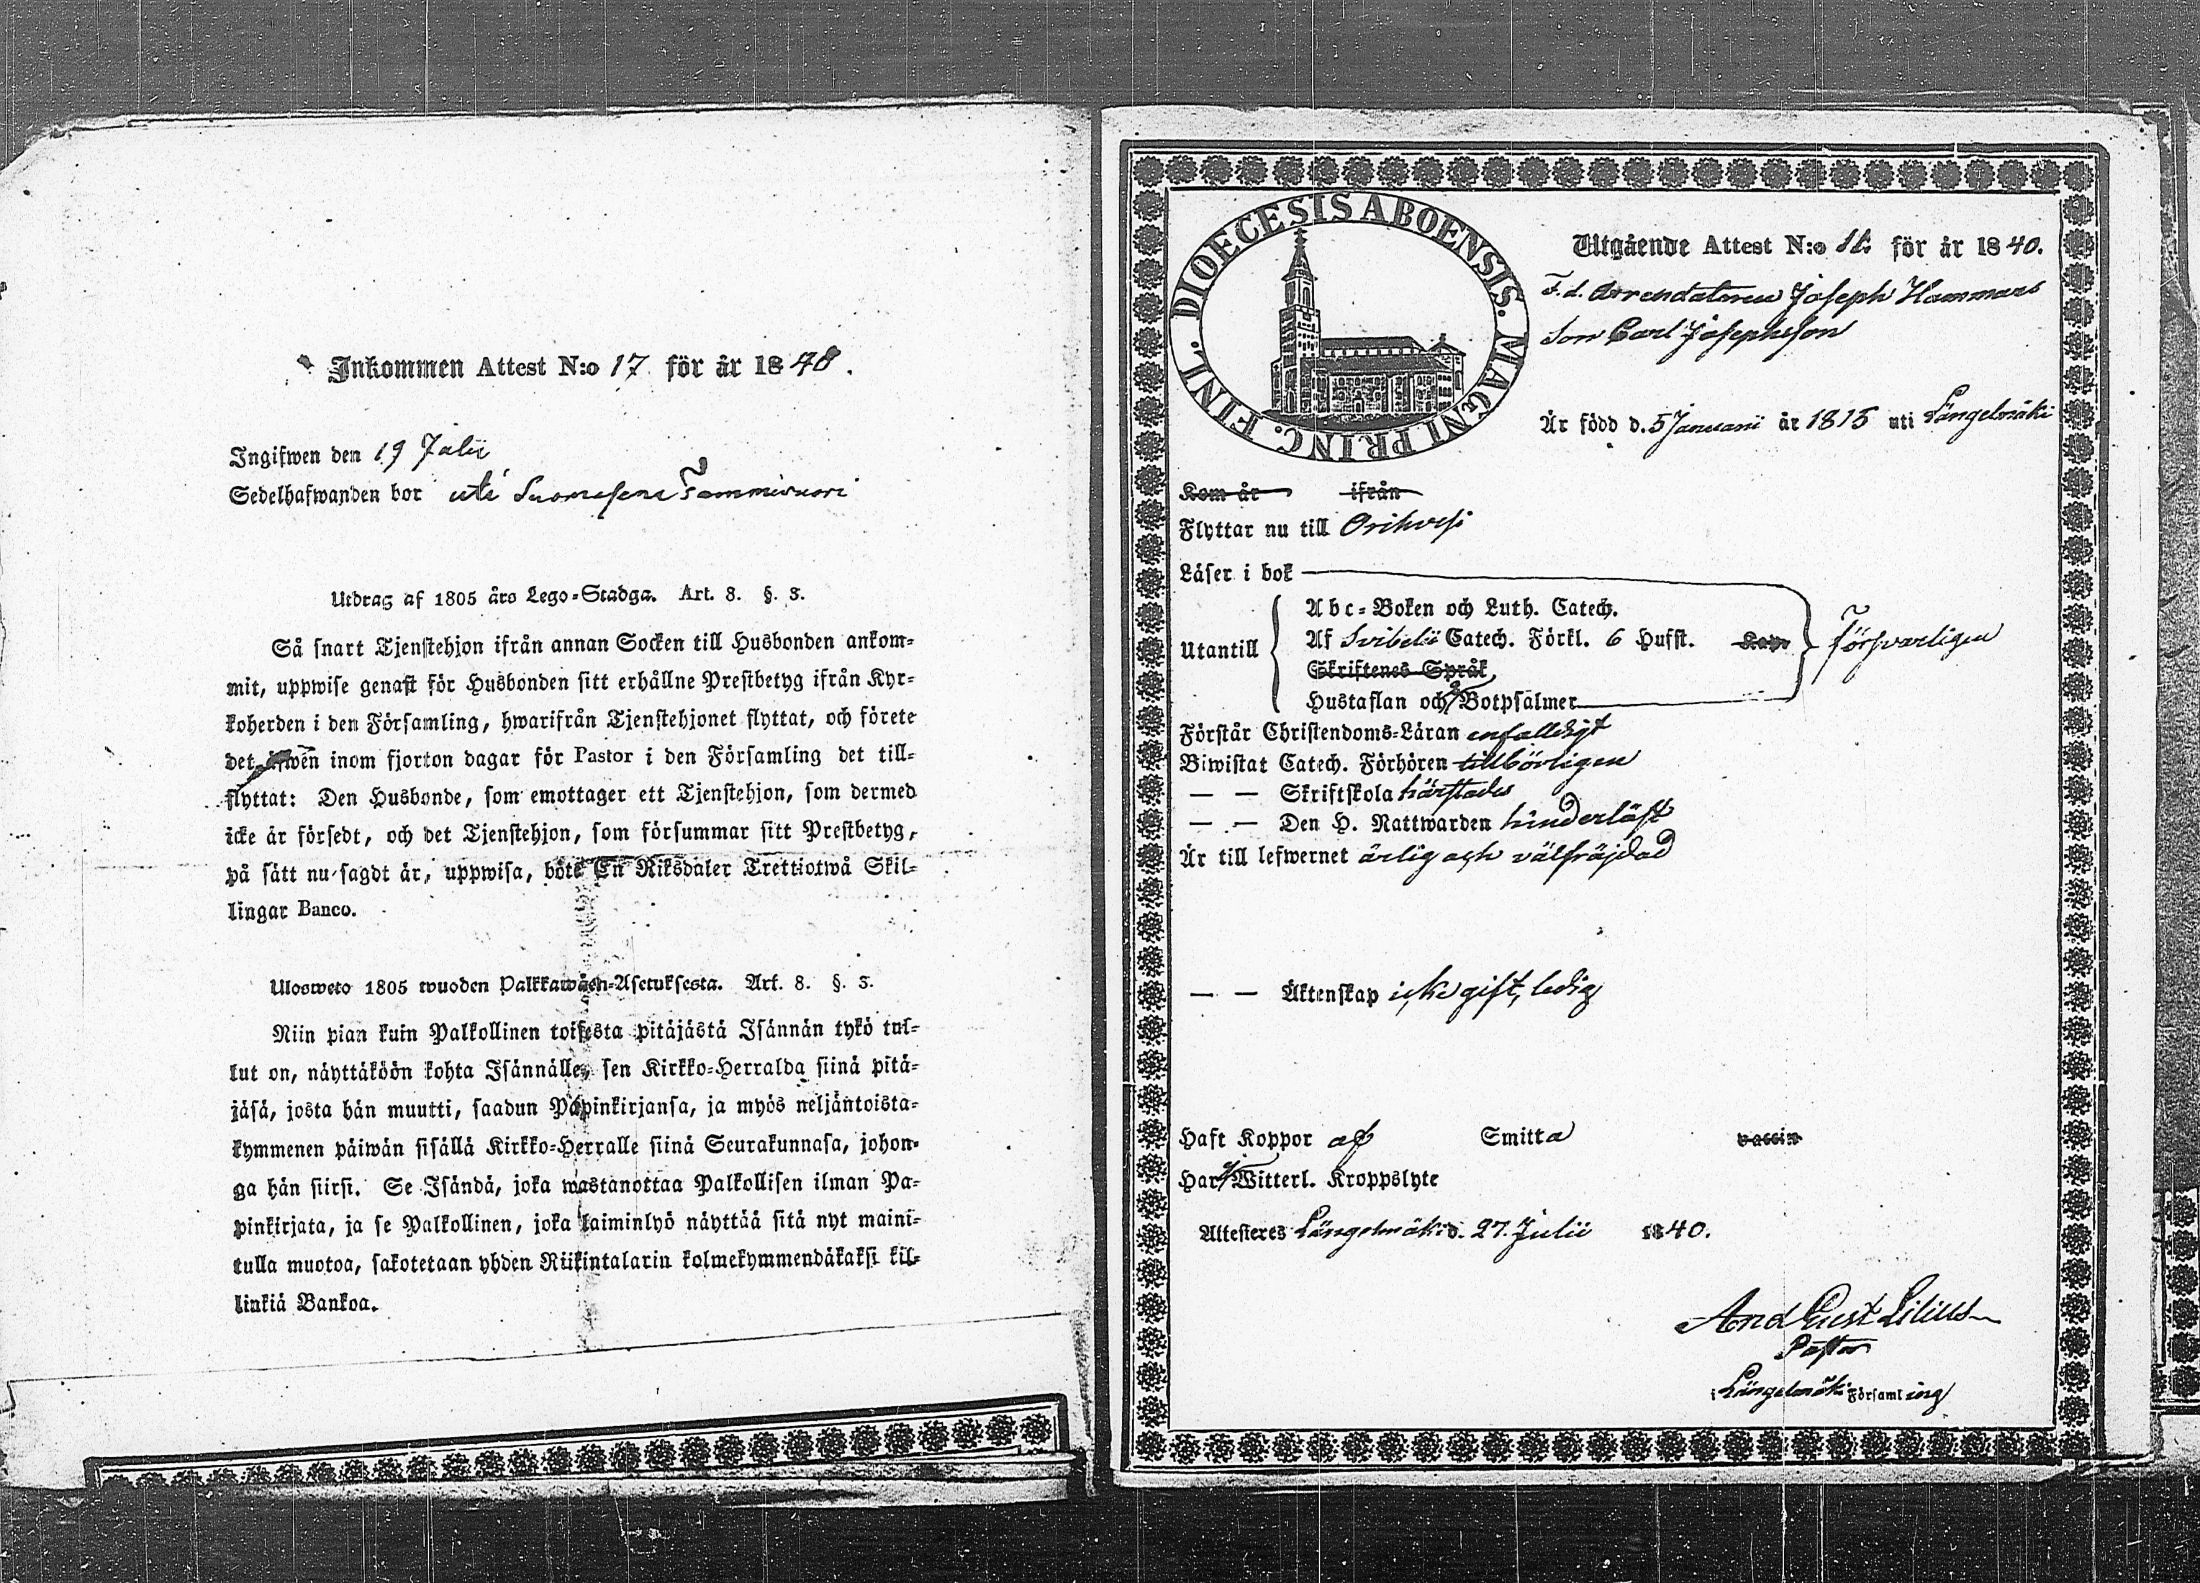 Inkommen Attest N:o 17 för år 1840.
Ingifwen den 19 Julii
Sedelhafwanden bor uti Suomasema Tammivuori
Utdrag af 1805 års Lego-Stadga. Art. 8. §. 3.
Så snart Tjenstehjon ifrån annan Socken till Husbonden ankom-
mit, uppwise genast för Husbonden sitt erhållne Prestbetyg ifrån Kyr-
koherden i den Församling, hwarifrån Tjenstehjonet flyttat, och förete
det äfwen inom fjorton dagar för Pastor i den Församling det till-
flyttat: Den Husbonde, som emottager ett Tjenstehjon, som dermed
icke är försedt, och det Tjenstehjon, som försummar sitt Prestbetyg,
på sätt nu sagdt är, uppwisa, böte En Riksdaler Trettiotwå Skil-
lingar Banco.
Ulosweto 1805 wuoden Palkkawäen-Asetuksesta. Art. 8. §. 3.
Niin pian kuin Palkollinen toisesta pitäjästä Isännän tykö tul-
lut on, näyttäköön kohta Isännälle, sen Kirkko-Herralda siinä pitä-
jäsä, josta hän muutti, saadun Papinkirjansa, ja myös neljäntoista-
kymmenen päiwän sisällä Kirkko-Herralle siinä Seurakunnasa, johon-
ga hän siirsi. Se Isändä, joka wastanottaa Palkollisen ilman Pa-
pinkirjata, ja se Palkollinen, joka laiminlyö näyttää sitä nyt maini-
tulla muotoa, sakotetaan yhden Riikintalarin kolmekymmendäkaksi kil-
linkiä Bankoa.
DIOECESIS ABOENSIS. MAGNI PRINC. FINL.
Utgående Attest N:o för år 1840.
F.d. Arrendatoren Joseph Hammars
Son Carl Josephsson
Är född d. 5 Januarii år 1815 uti Längelmäki
Kom år ifrån
Flyttar nu till Orihvesi
Läser i bok
Utantill
Abc-Boken och Luth. Catech.
Af Svibelii Catech. Förkl. 6 Hufst. Kap.
Skriftenes Språk
Hustaflan och Botpsalmer
försvarligen
Förstår Christendoms-Läran enfalldigt
Biwistat Catech. Förhören tillbörligen
— — Skriftskola härstädes
— — Den H. Nattwarden hinderlöst
Är till lefwernet ärlig och välfräjdad
— — Äktenskap icke gift, ledig
Haft Koppor af Smitta vaccin
Har Witterl. Kroppslyte
Attesteres Längelmäki d. 27. Julii 1840.
And Gust Lilius
Pastor
i Längelmäki Församling